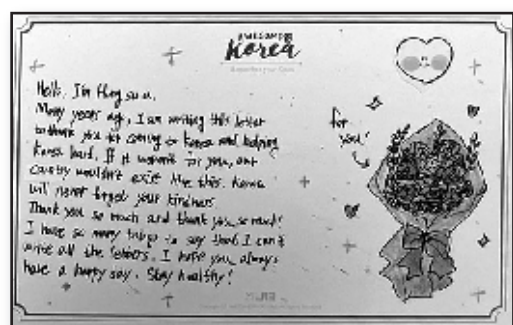 AWESOME
Korea
Hello, I'm
Many years ago, I am writing this letter
to thank you for coming to Korea and helping
Korea hard. If it weren't for you, our
country wouldn't exist like this. Korea
will never forget your kindness.
Thank you so much and thank you so much!
I have so many things to say that I can't
write all the letters. I hope you always
have a happy day. Stay healthy!
for
you!